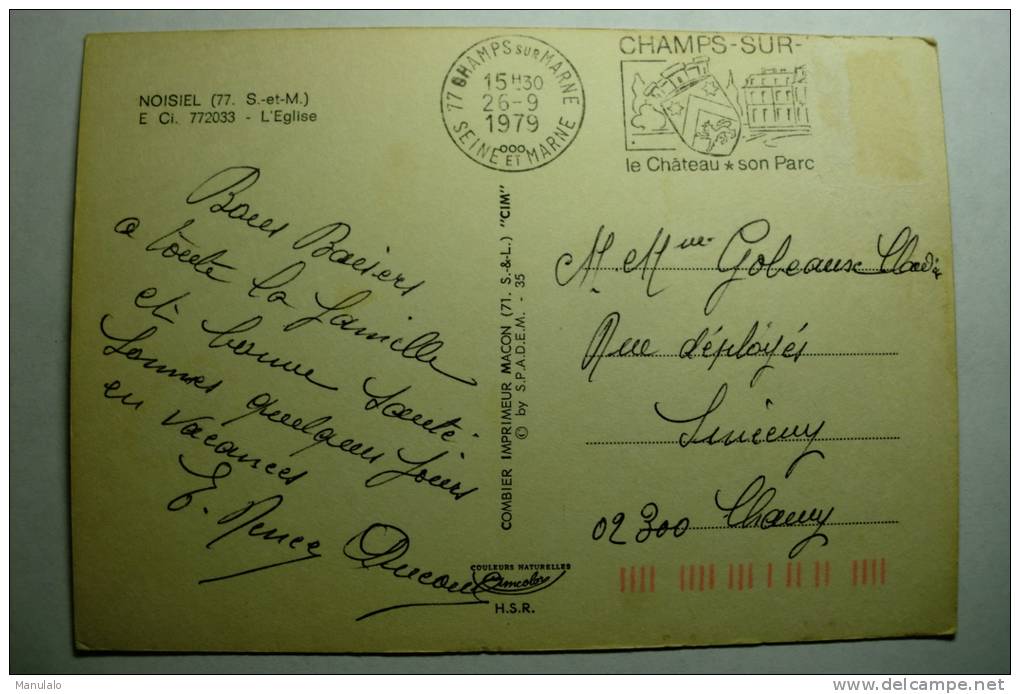 NOISIEL (77. S.-et-M.)
E Ci. 772033 - L'Eglise
77 CHAMPS SUR MARNE
15H30
26-9
1979
SEINE ET MARNE
CHAMPS-SUR-
le Château ★ son Parc
Bons Baisers
a toute la famille
et bonne santé
sommes quelques jours
en vacances
COMBIER IMPRIMEUR MACON (71. S.-&-L.) "CIM"
© by S.P.A.D.E.M. - 35
M. Mme Gobeaux
Rue
Sinceny
02300 Chauny
COULEURS NATURELLES
Cimcolor
H.S.R.
Manulalo
delcampe.net